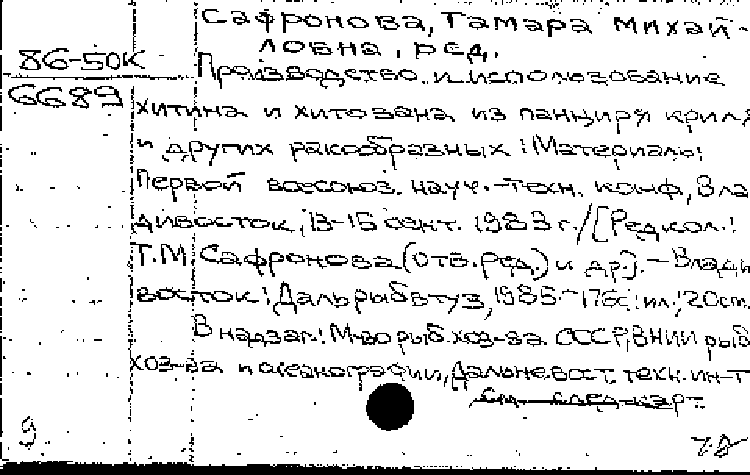 Сафронова, Тамара Михай-
ловна, ред.
86-50К
Производство и использование
6689
хитина и хитозана из панциря криля
и других ракообразных : Материалы
Первой всесоюз. науч.-техн. конф., Вла
дивосток, 13-15 сент. 1983 г. / [Редкол.:
Т.М. Сафронова (отв. ред.) и др.]. - Влади
восток : Дальрыбвтуз, 1985. - : ил.; 20 см.
В надзаг.: М-во рыб. хоз-ва СССР, ВНИИ рыб
хоз-ва и океанографии, Дальневост. техн. ин-т
См. след. карт.
9